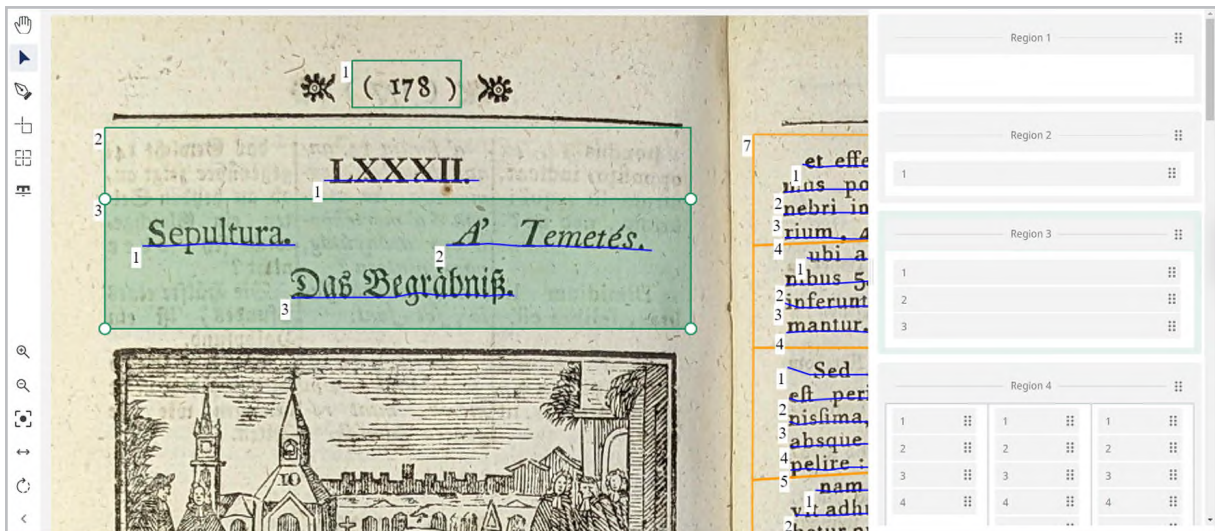 Region 1
1 ( 178 )
2
LXXXII.
1
3
Sepultura. A' Temetés.
1 2
Das Begräbniß.
3
10
7
et effe
1
mus po
2
nebri in
3
rium, a
4
ubi a
1
nibus 5.
2
inferunt
3
mantur.
4
Sed
1
est peri
2
nissima,
3
absque
4
pelire :
5
nam
1
vit adhu
2
Region 2
1
Region 3
1
2
3
Region 4
1 1 1
2 2 2
3 3 3
4 4 4